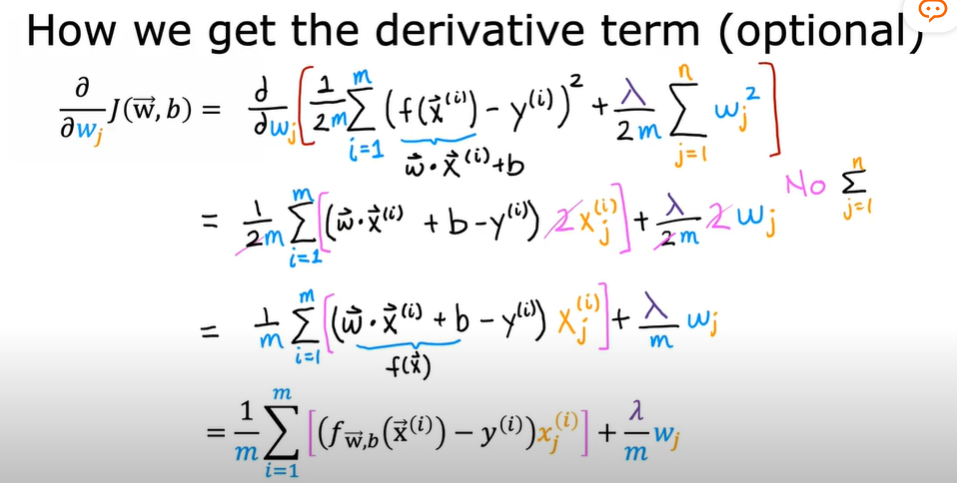 How we get the derivative term (optional)
∂/∂wⱼ J(w⃗, b) = d/dwⱼ [ 1/2m ∑ᵢ₌₁ᵐ (f(x⃗⁽ⁱ⁾) − y⁽ⁱ⁾)² + λ/2m ∑ⱼ₌₁ⁿ wⱼ² ]
w⃗ · x⃗⁽ⁱ⁾ + b
= 1/2m ∑ᵢ₌₁ᵐ [ (w⃗ · x⃗⁽ⁱ⁾ + b − y⁽ⁱ⁾) 2 xⱼ⁽ⁱ⁾ ] + λ/2m 2 wⱼ No ∑ⱼ₌₁ⁿ
= 1/m ∑ᵢ₌₁ᵐ [ (w⃗ · x⃗⁽ⁱ⁾ + b − y⁽ⁱ⁾) xⱼ⁽ⁱ⁾ ] + λ/m wⱼ
f(x⃗)
= 1/m ∑ᵢ₌₁ᵐ [ (f_w⃗,b(x⃗⁽ⁱ⁾) − y⁽ⁱ⁾) xⱼ⁽ⁱ⁾ ] + λ/m wⱼ